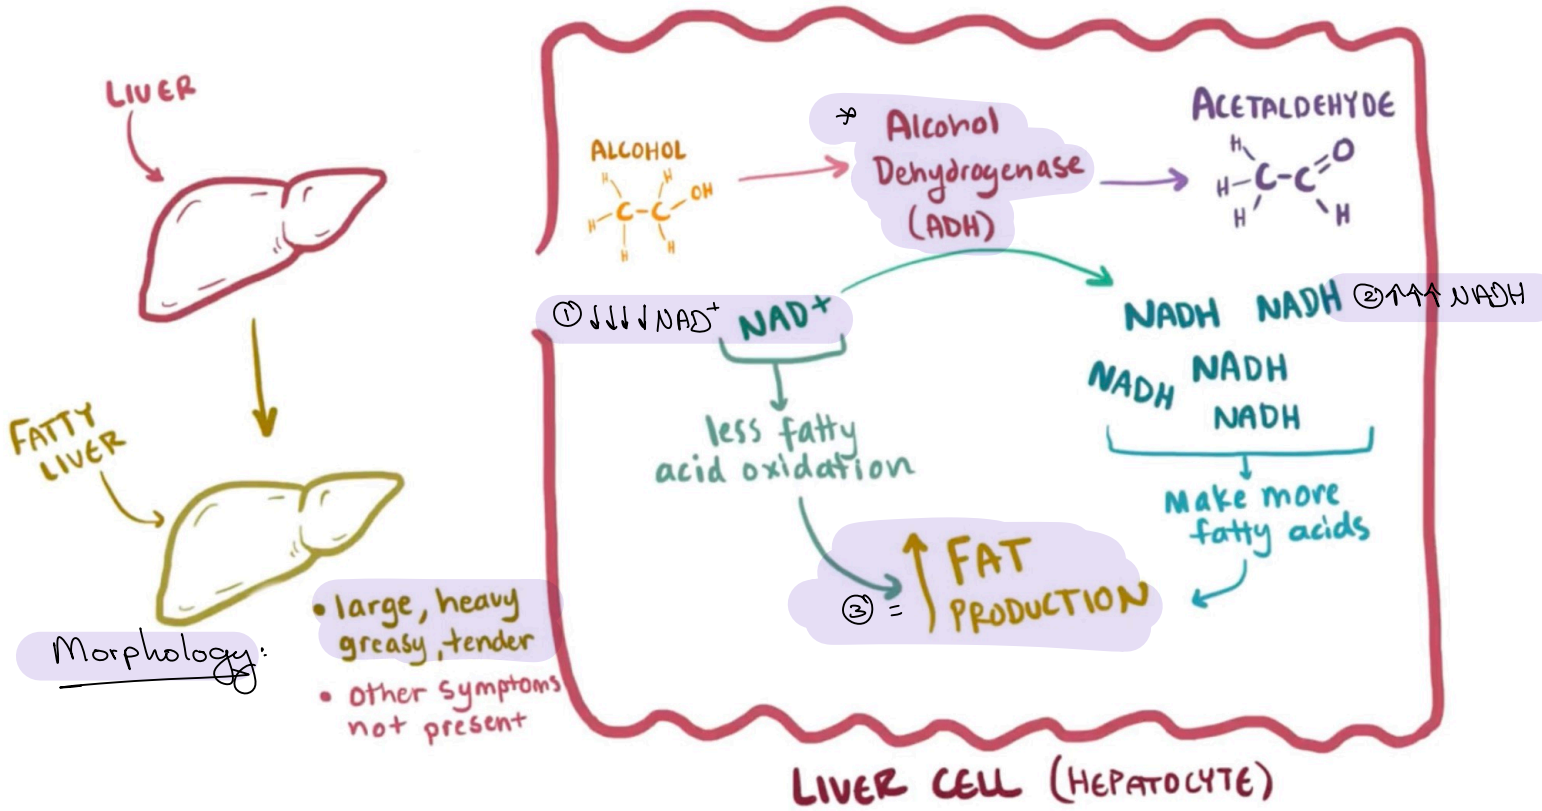 LIVER
FATTY
LIVER
Morphology:
• large, heavy
greasy, tender
• other symptoms
not present
ALCOHOL
H H OH
H C-C
H H
* Alcohol
Dehydrogenase
(ADH)
ACETALDEHYDE
H O
H-C-C
H H
① ↓↓↓↓ NAD⁺ NAD+
less fatty
acid oxidation
NADH NADH ② ↑↑↑ NADH
NADH NADH
NADH
Make more
fatty acids
③ = ↑ FAT
PRODUCTION
LIVER CELL (HEPATOCYTE)